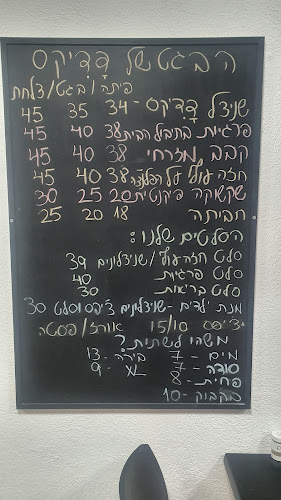 הבגט של דֶדִיקס
פיתה/בגט/צלחת
שניצל דֶדִיקס - 34 35 45
פרגיות בתיבול הבית 38 40 45
קבב מזרחי 38 40 45
חזה עוף על הפלנצ'ה 38 40 45
שקשוקה פיקנטית 20 25 30
חביתה 18 20 25
הסלטים שלנו:
סלט חזה עוף/שניצלונים 39
סלט פרגיות 40
סלט בריאות 30
מנת ילדים - שניצלונים צ'יפס וסלט 30
צ'יפס 15/10 אורז/פסטה
משהו לשתות?
מים - 7 בירה - 13
סודה - 7 XL - 9
פחית - 8
בקבוק - 10